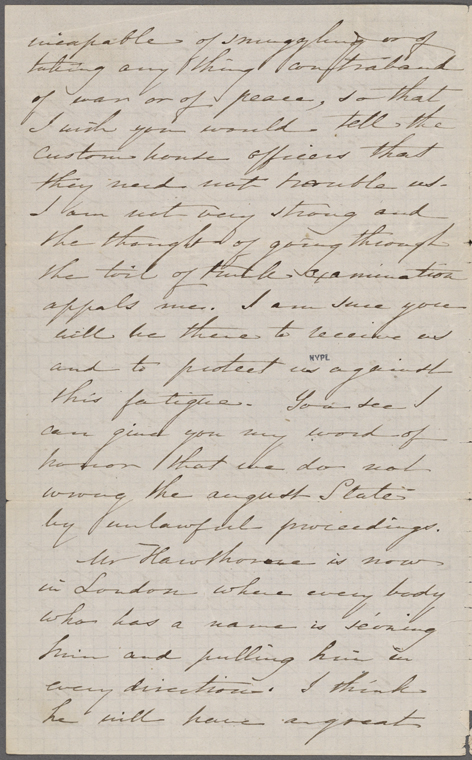 incapable of smuggling or of
taking any thing contraband
of war or of peace, so that
I wish you would tell the
custom house officers that
they need not trouble us.
I am not very strong and
the thought of going through
the toil of trunk examination
appals me. I am sure you
will be there to receive us
and to protect us against
NYPL
this fatigue. You see I
can give you my word of
honor that we do not
wrong the august State
by unlawful proceedings.
Mr Hawthorne is now
in London where every body
who has a name is
him and pulling him in
every direction. I think
he will have a great